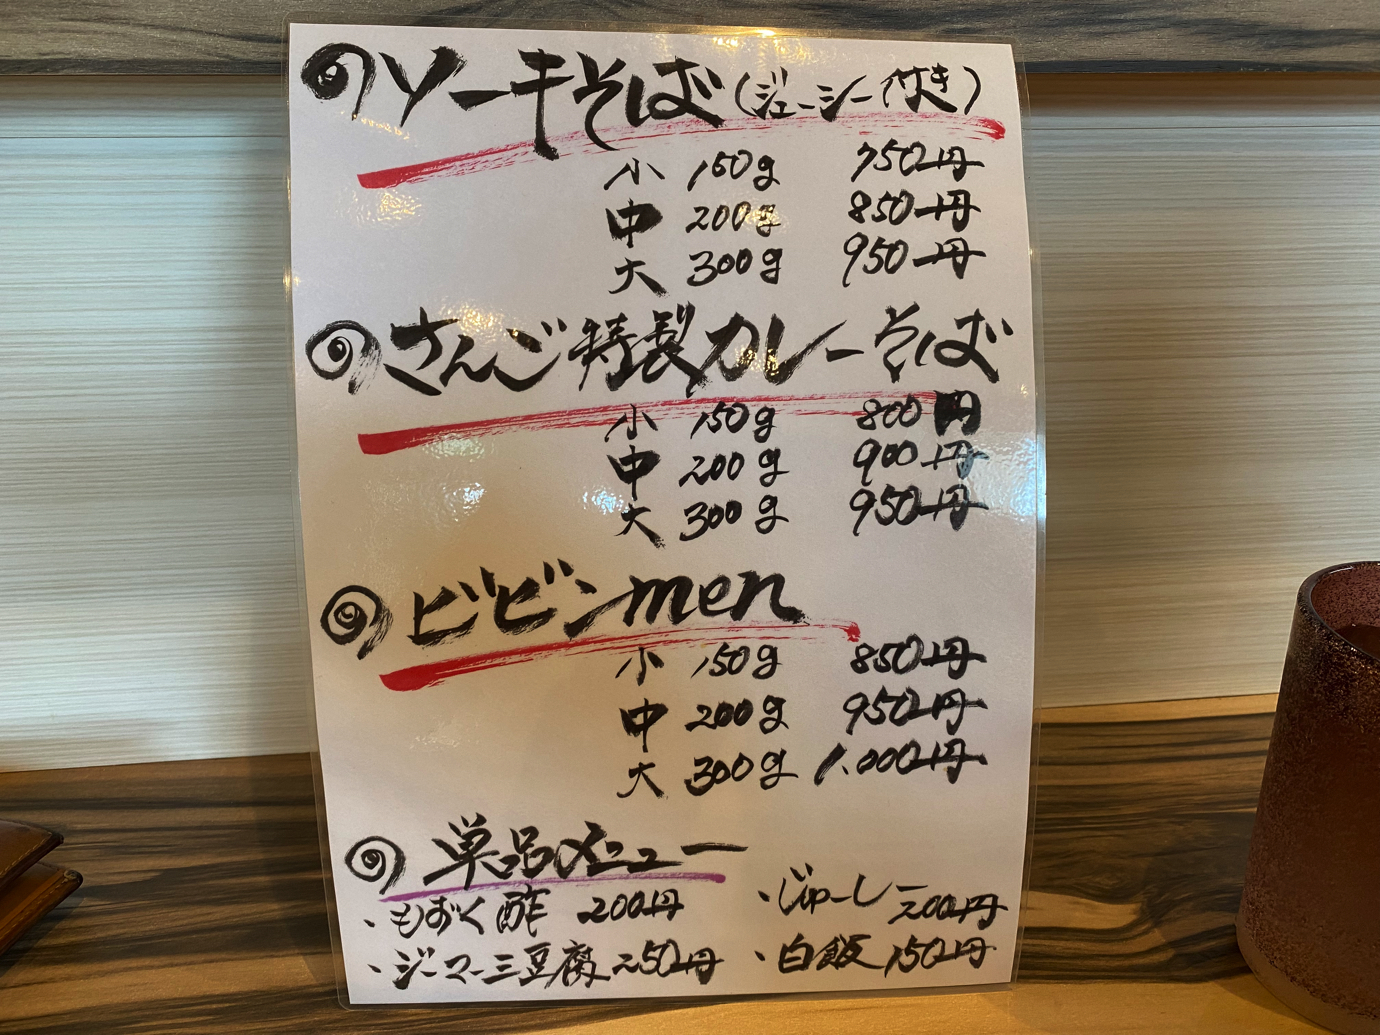 ソーキそば(ジューシー付き)
小 150g 750円
中 200g 850円
大 300g 950円
さんご特製カレーそば
小 150g 800円
中 200g 900円
大 300g 950円
ビビンmen
小 150g 850円
中 200g 950円
大 300g 1.000円
単品メニュー
・もずく酢 200円 ・じゅーしー 200円
・ジーマー三豆腐 250円 ・白飯 150円